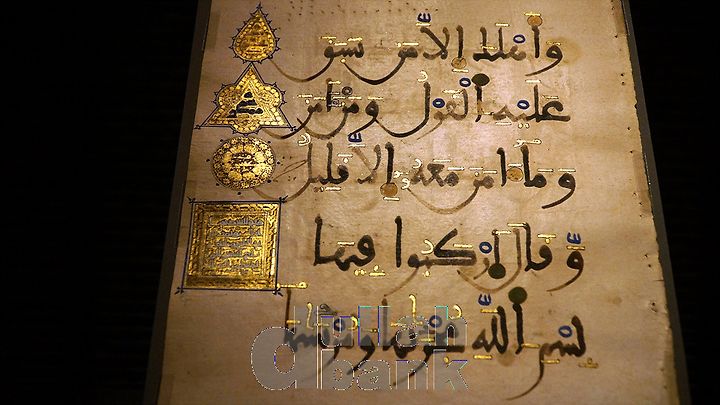 وَأَهْلَكَ إِلَّا مَن سَبَقَ
عَلَيْهِ الْقَوْلُ وَمَنْ ءَامَنَ
وَمَا ءَامَنَ مَعَهُ إِلَّا قَلِيلٌ
وَقَالَ ارْكَبُوا فِيهَا
بِسْمِ اللَّهِ مُجْرَىٰهَا وَمُرْسَىٰهَا
ullah
bank